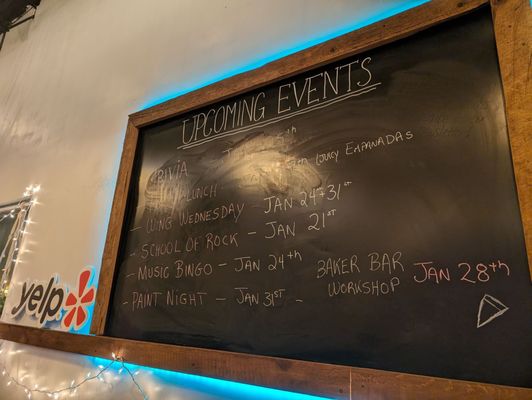 UPCOMING EVENTS
TRIVIA
LUNCH Lucy Empanadas
- Wing Wednesday - Jan 24th + 31st
- School of Rock - Jan 21st
- Music Bingo - Jan 24th
- Paint Night - Jan 31st -
Baker Bar Workshop Jan 28th
yelp